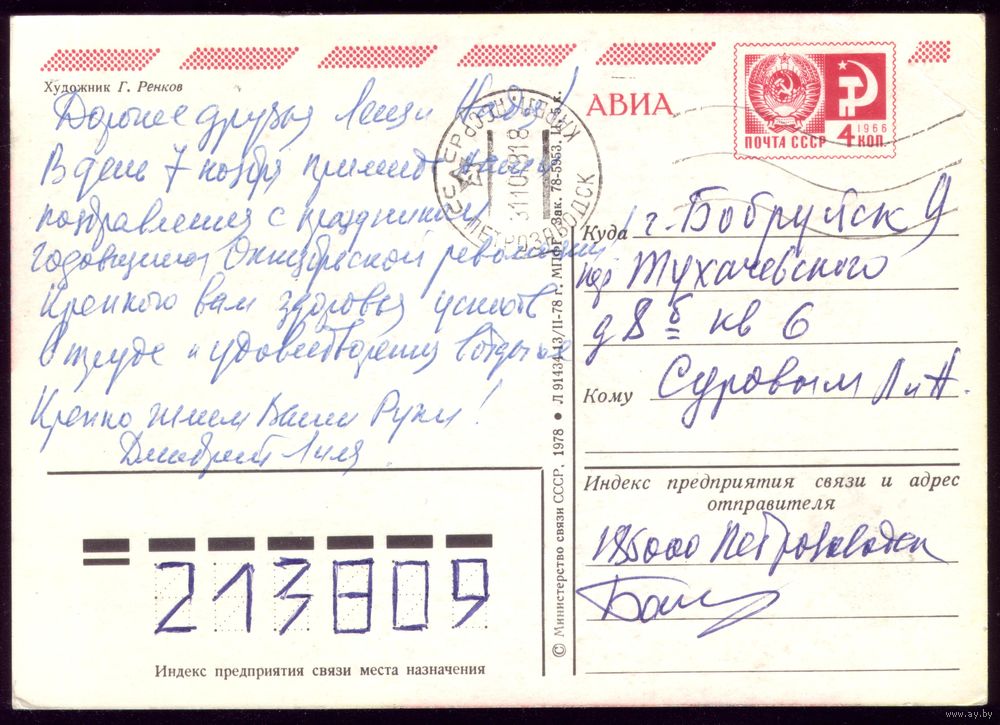 Художник Г. Ренков
Дорогие друзья Лёня Надя!
В день 7 ноября примите наши
поздравления с праздником
годовщиной Октябрьской революции
Крепкого вам здоровья успехов
в труде и удовлетворения в отдыхе
Крепко жмем Ваши Руки!
Дмитрий Лиля
Индекс предприятия связи места назначения
213809
© Министерство связи СССР, 1978 ● Л 91434 13/II-78 г. МПФГ. Зак. 78-5953. Ц. 5 к.
СССР
ПЕТРОЗАВОДСК
311078 18
АВИА
1966
ПОЧТА СССР 4 КОП.
Куда г. Бобруйск 9
Тухачевского
д 8 б кв 6
Кому Суровым Л и Н.
Индекс предприятия связи и адрес
отправителя
185000 Петрозаводск
www.ay.by